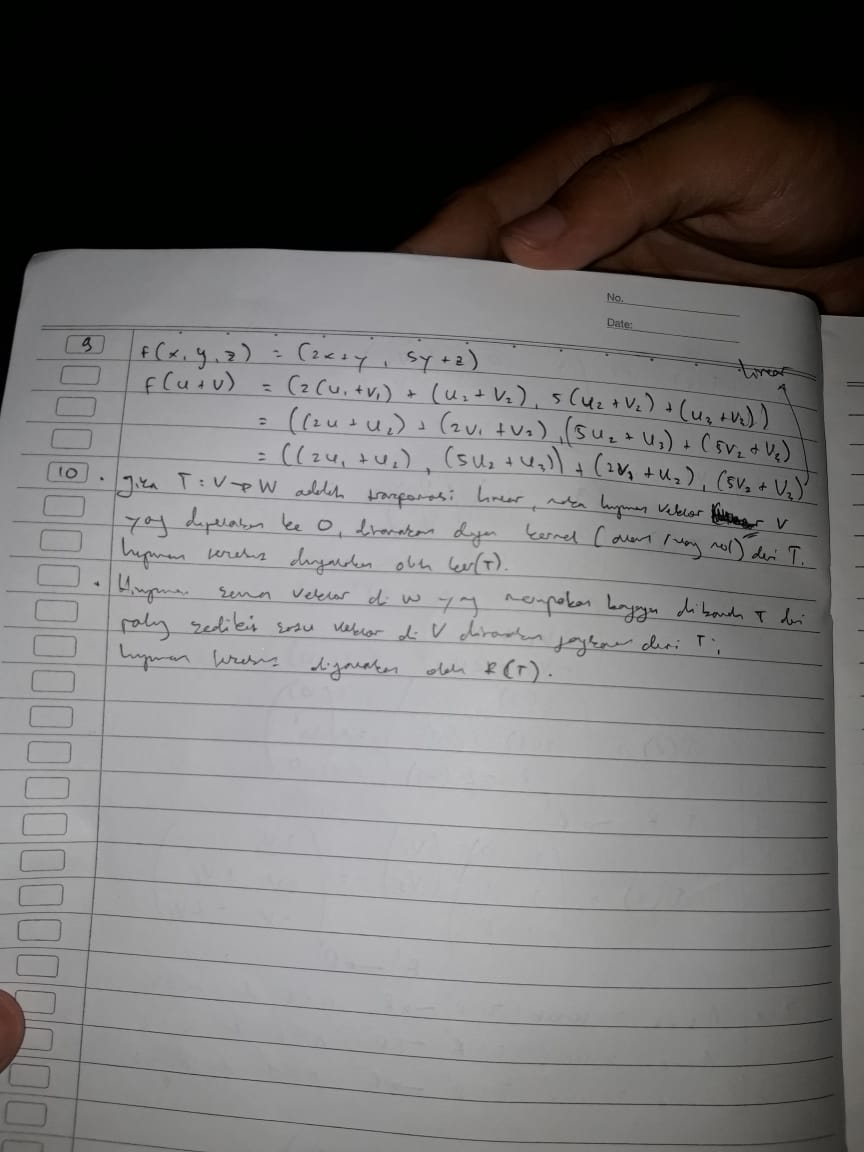 No.
Date:
9 f(x, y, z) = (2x+y, 5y+z)
linear
f(u+v) = (2(u₁+v₁) + (u₂+v₂), 5(u₂+v₂) + (u₃+v₃))
= ((2u+u₂) + (2v₁+v₂), (5u₂+u₃) + (5v₂+v₃)
= ((2u₁+u₂), (5u₂+u₃)) + (2v₁+u₂), (5v₂+v₃)
10 . Jika T : V → W adalah linear, maka himpunan vektor V
yang ke 0, dinamakan dengan kernel ( ruang nol) dari T.
himpunan tersebut oleh ker(T).
. Himpunan semua vektor di W yang merupakan bayangan dibawah T dari
paling sedikit satu vektor di V dinamakan dari T;
himpunan tersebut oleh R(T).